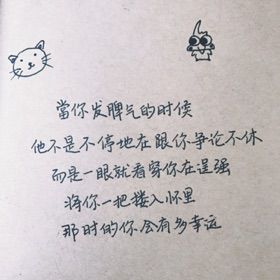 當你发脾气的时候
他不是不停地在跟你争论不休
而是一眼就看穿你在逞强
将你一把搂入怀里
那时的你会有多幸运